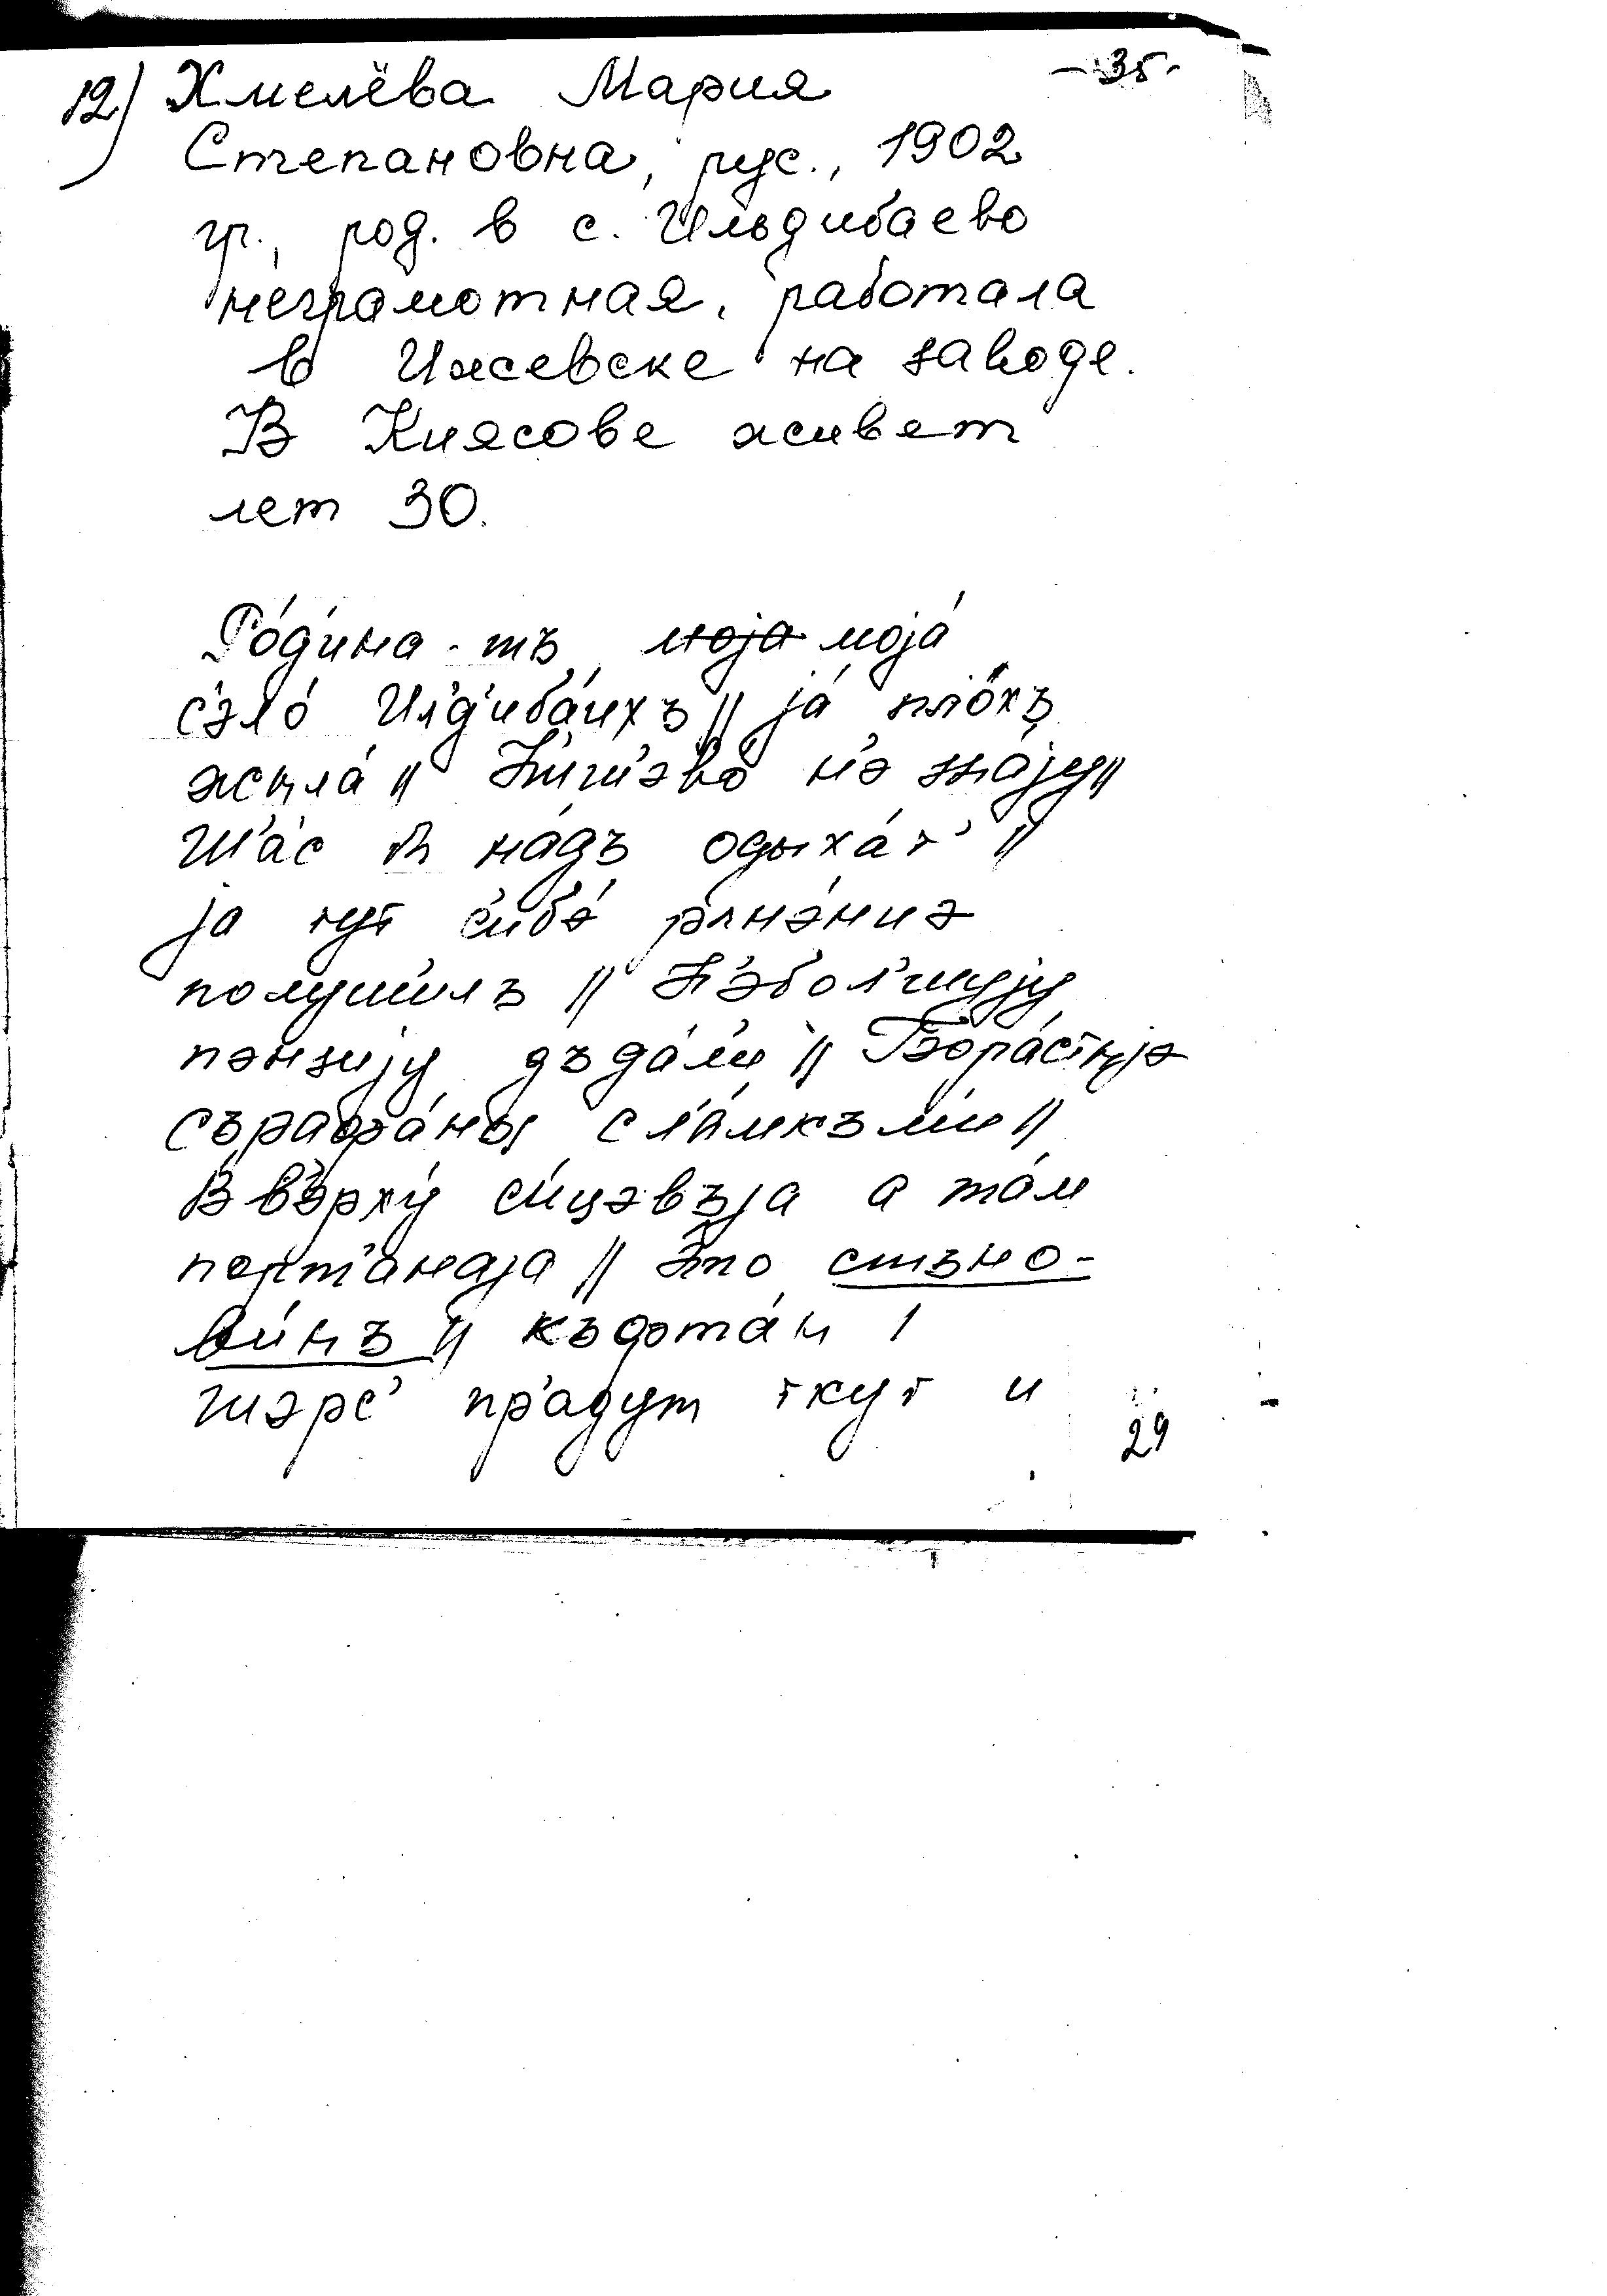 - 35 -
12) Хмелёва Мария
Степановна, рус., 1902
гр., род. в с. Ильдибаево
неграмотная, работала
в Ижевске на заводе.
В Киясове живет
лет 30.
Ро́д'ина-тъ моја моја́
с'эло́ Ил'д'иба́ихъ // ја́ пло́хъ
жыла́ // Н'ич'иэво́ н'э зна́ју //
Ш'а́с на́дъ одыха́т' //
ја тут с'иб'э́ ран'э́ниэ
получ'илъ // Н'эбол'шују
пэнзију дъда́л'и //
съраφа́ны с л'а́мкъм'и //
В в'эрху́ си́цэвъја а та́м
порт'анаја // Это стъно-
ви́нъ // къφта́н /
шэрс' пр'аду́т ткут и
29